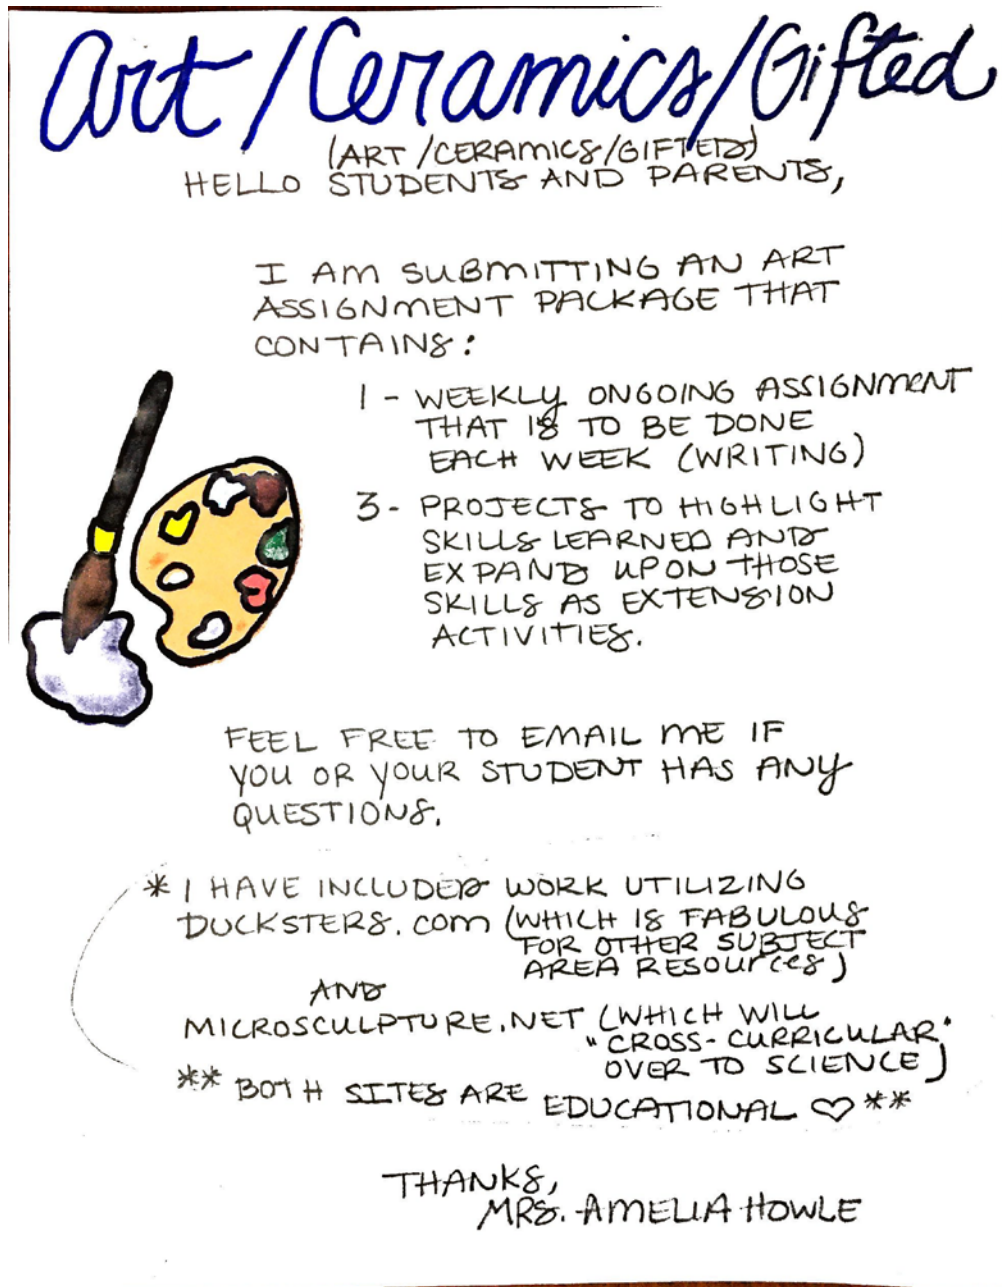 Art/Ceramics/Gifted
(ART/CERAMICS/GIFTED)
HELLO STUDENTS AND PARENTS,
I AM SUBMITTING AN ART
ASSIGNMENT PACKAGE THAT
CONTAINS:
1 - WEEKLY ONGOING ASSIGNMENT
THAT IS TO BE DONE
EACH WEEK (WRITING)
3 - PROJECTS TO HIGHLIGHT
SKILLS LEARNED AND
EXPAND UPON THOSE
SKILLS AS EXTENSION
ACTIVITIES.
FEEL FREE TO EMAIL ME IF
YOU OR YOUR STUDENT HAS ANY
QUESTIONS.
* I HAVE INCLUDED WORK UTILIZING
DUCKSTERS.com (WHICH IS FABULOUS
FOR OTHER SUBJECT
AREA RESOURCES)
AND
MICROSCULPTURE.NET (WHICH WILL
"CROSS-CURRICULAR"
OVER TO SCIENCE)
** BOTH SITES ARE EDUCATIONAL ♡ **
THANKS,
MRS. AMELIA HOWLE